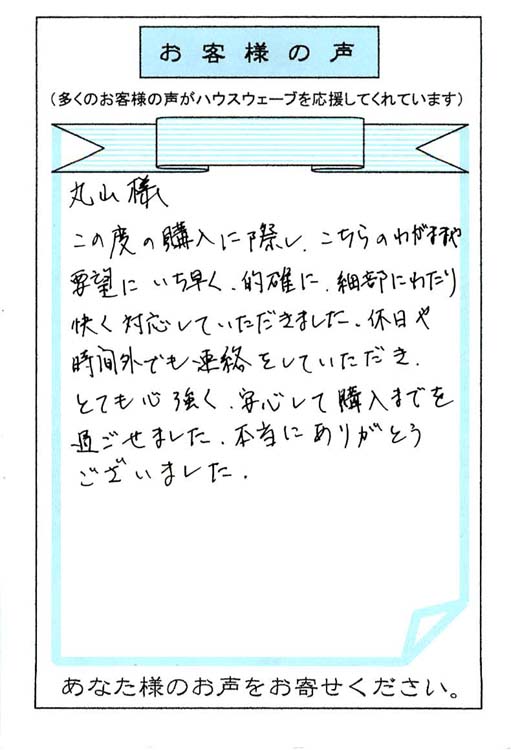 お客様の声
（多くのお客様の声がハウスウェーブを応援してくれています）
丸山様
この度の購入に際し、こちらのわがままや
要望にいち早く、的確に、細部にわたり
快く対応していただきました。休日や
時間外でも連絡をしていただき、
とても心強く、安心して購入までを
過ごせました。本当にありがとう
ございました。
あなた様のお声をお寄せください。